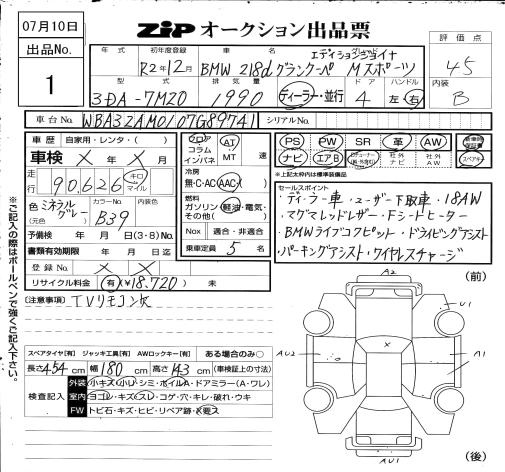 07月10日
ZIP オークション出品票
出品No.
1
年式
初年度登録
車名
グレード
評価点
R2年12月
BMW 218d グランクーペ
エディションジョイナ
Mスポーツ
4.5
型式
排気量
ドア
ハンドル
内装
3DA-7M20
1990
ディーラー・並行
4
左 右
B
車台No.
WBA32AM0107G89741
シリアルNo.
車歴
自家用・レンタ・( )
車検 × 年 × 月
走行
90,626
キロ
マイル
色 ミネラルグレー
(元色 )
カラーNo.
B39
内装色
予備検 年 月 日(3・8)No.
書類有効期限 年 月 日迄
登録No. × ×
リサイクル料金 有(¥18,720) 未
フロア
コラム
インパネ
AT
MT
速
冷房
無・C・AC AAC
燃料
ガソリン 軽油・電気・
その他( )
Nox 適合・非適合
乗車定員 5 名
PS
PW
SR
革
AW
ナビ
エアB
社外ナビ
社外AW
スペアキー
※上記太枠内は標準装備品
セールスポイント
・ディーラー車・ユーザー下取車・18AW
・マグマレッドレザー・Fシートヒーター
・BMWライブコクピット・ドライビングアシスト
・パーキングアシスト・ワイヤレスチャージ
※ご記入の際はボールペンで強くご記入下さい。
(注意事項) TVリモコン欠
スペアタイヤ[有] ジャッキ工具[有] AWロックキー[有] ある場合のみ○
長さ 454 cm 幅 180 cm 高さ 143 cm (車検証上の寸法)
検査記入
外装 小キズ・小U・シミ・ホイルA・ドアミラー(A・ワレ)
室内 ヨゴレ・キズ・スレ・コゲ・穴・キレ・破れ・ウキ
FW トビ石・キズ・ヒビ・リペア跡・X要ス
(前)
A2
U1
AU2
×
A1
AU1
(後)